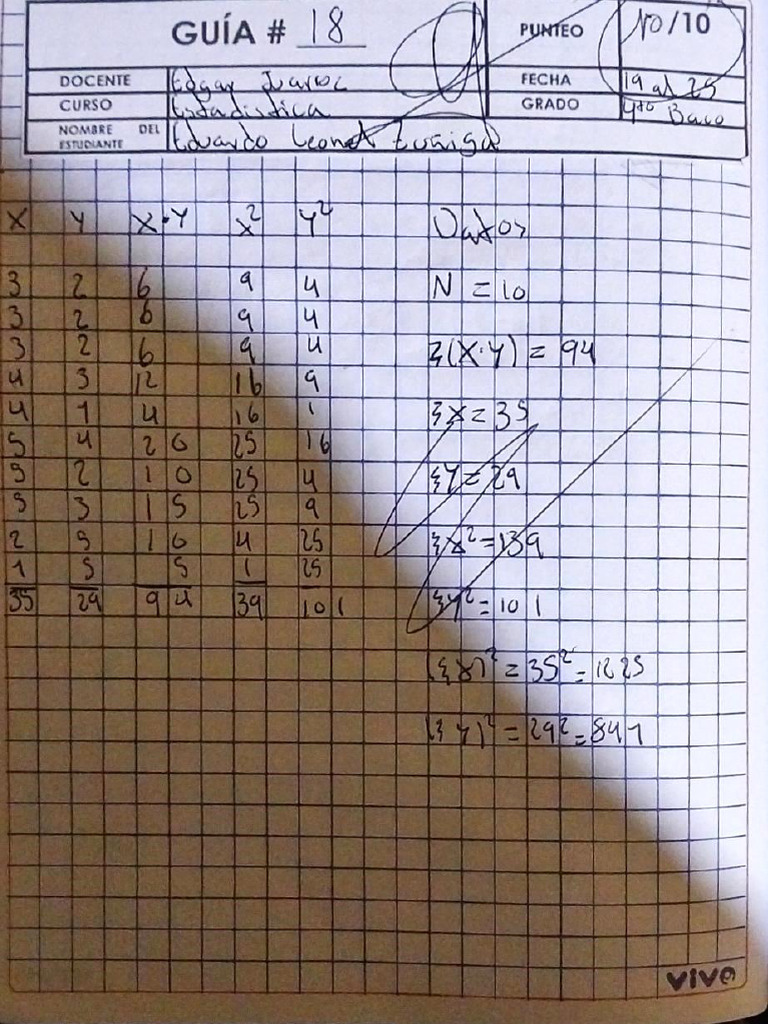 GUÍA # 18
PUNTEO 10/10
DOCENTE Edgar Juarez
FECHA 19 al 25
CURSO Estadistica
GRADO 4to Baco
NOMBRE DEL ESTUDIANTE Eduardo Leonel
X Y X·Y X² Y² Datos
3 2 6 9 4 N = 10
3 2 6 9 4
3 2 6 9 4 Σ(X·Y) = 94
4 3 12 16 9
4 1 4 16 1 ΣX = 35
5 4 20 25 16
5 2 10 25 4 ΣY = 29
5 3 15 25 9
2 5 10 4 25 ΣX² = 139
1 5 5 1 25
35 29 94 39 101 ΣY² = 101
(ΣX)² = 35² = 1225
(ΣY)² = 29² = 841
vivo